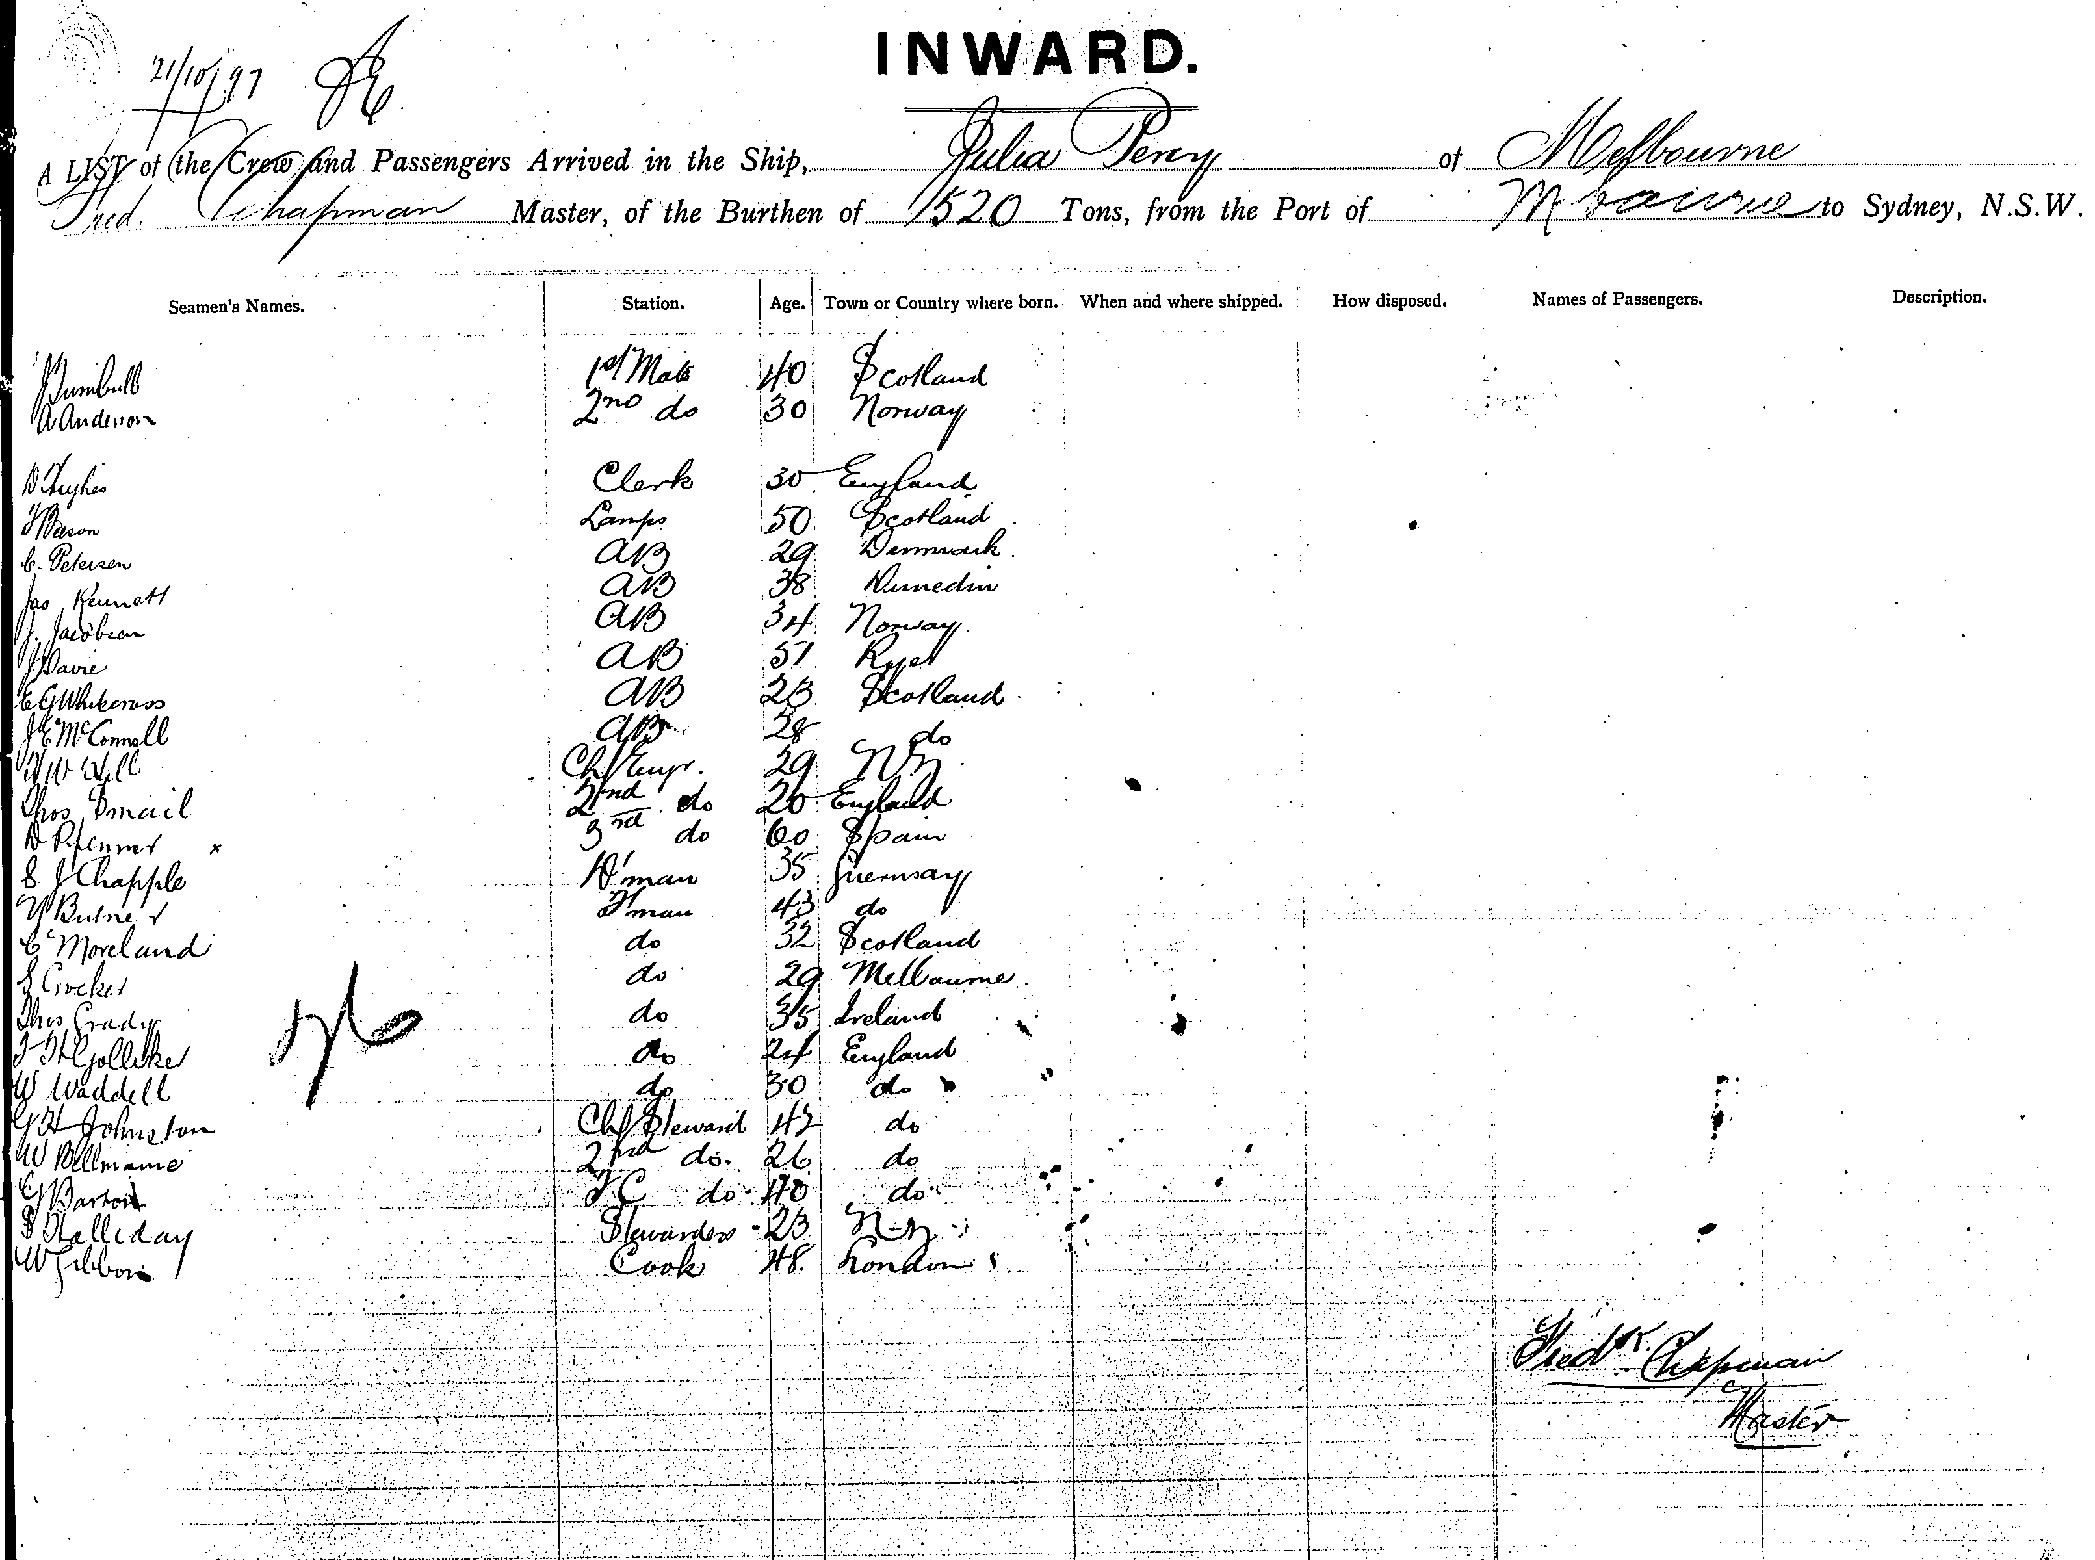 INWARD.
21/10/97
A LIST of the Crew and Passengers Arrived in the Ship, Julia Percy of Melbourne
Fred. Chapman Master, of the Burthen of 1520 Tons, from the Port of Melbourne to Sydney, N.S.W.
Seamen's Names. Station. Age. Town or Country where born. When and where shipped. How disposed. Names of Passengers. Description.
J Turnbull 1st Mate 40 Scotland
A Anderson 2nd do 30 Norway
D Hughes Clerk 30 England
Lamps 50 Scotland
C. Petersen AB 29 Denmark
Jas Kennett AB 38 Dunedin
J. Jacobsen AB 34 Norway
J Davie AB 57
C G Whitecross AB 23 Scotland
J E McConnell AB 28 do
Chf Engr. 29 NZ
Thos Smail 2nd do 26 England
3rd do 60 Spain
S J Chapple D'man 35 Guernsay
F'man 43 do
C Moreland do 32 Scotland
S Crocker do 29 Melbourne
Thos Grady do 35 Ireland
do 24 England
W Waddell do 30 do
G H Johnston Chf Steward 42 do
W Bellmaine 2nd do. 26 do
G Barton F.C do 40 do
S Halliday Stewardess 23 N-Z
W Gibbon Cook 48. London
26
Fredk. Chapman
Master